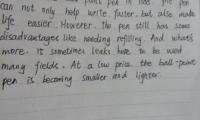 pen in
can not only help write faster, but also made
life easier. However, the pen still has some
disadvantages like needing refilling. And what's
more, it sometimes leaks to be used
many fields. At a low price, the ball-point
pen is becoming smaller and lighter.